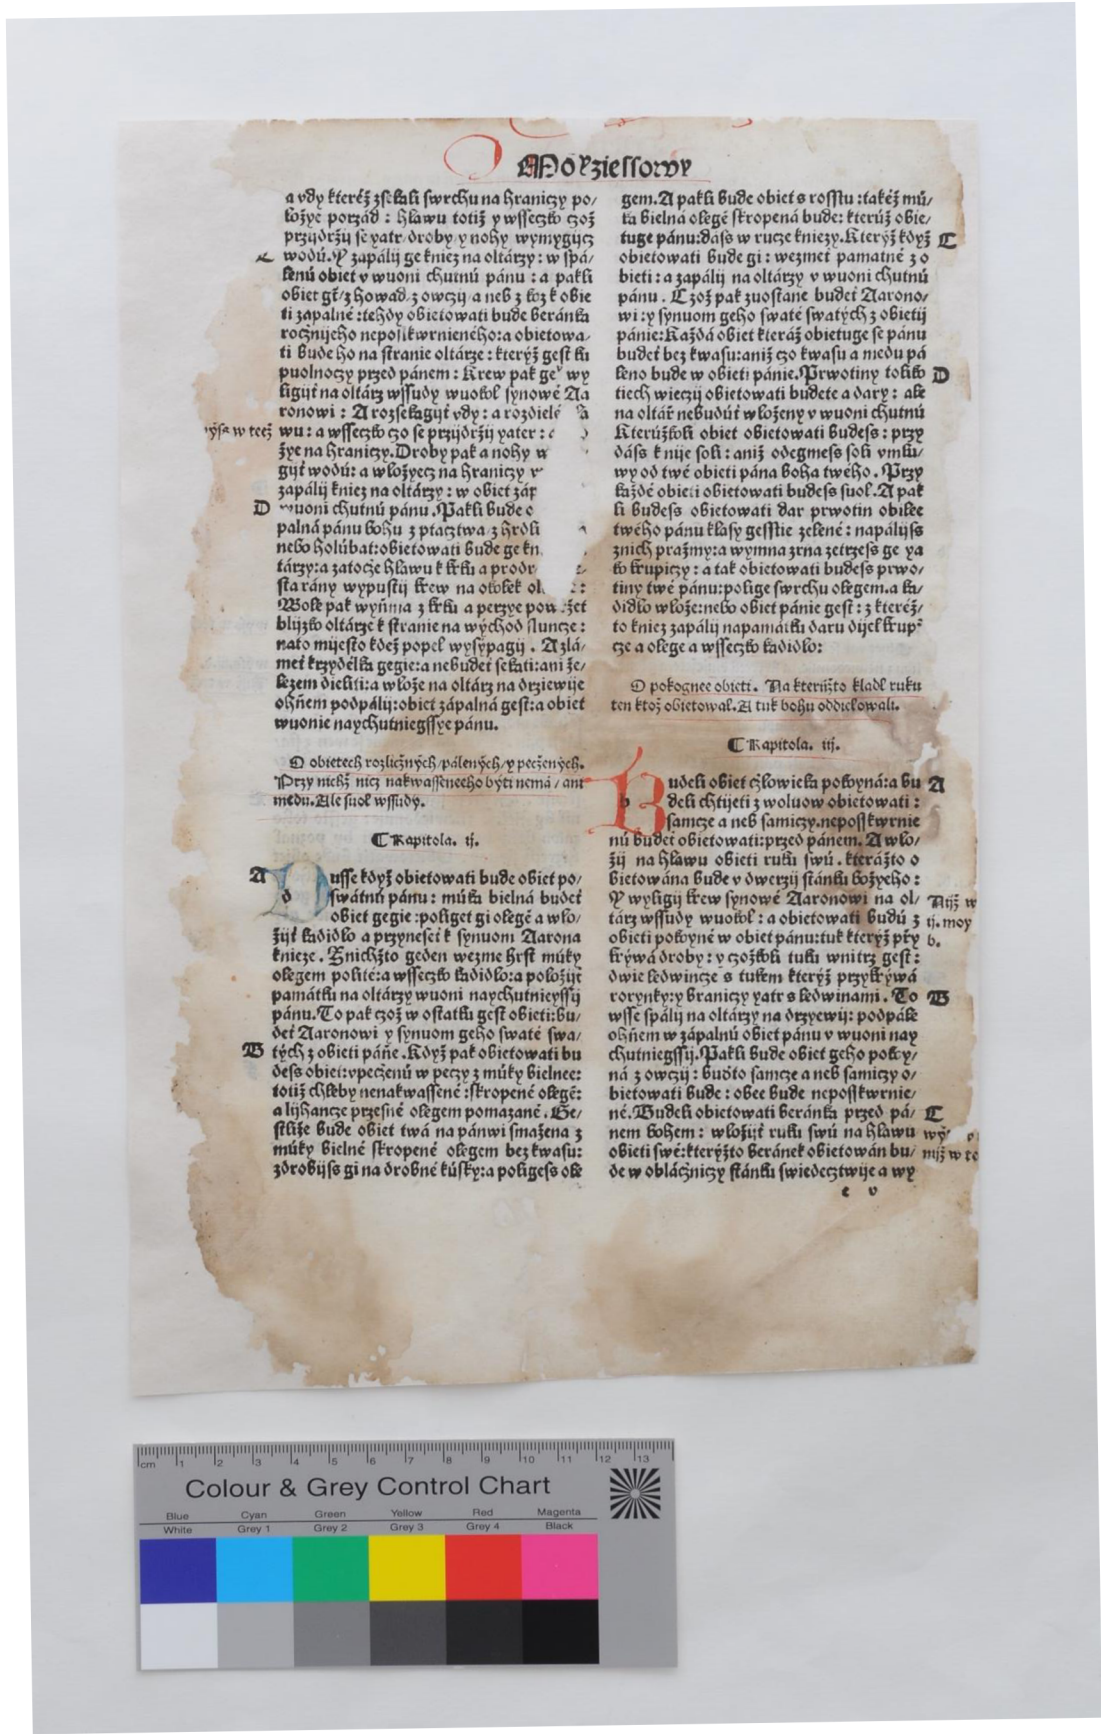 Moyziessowy
a vdy kteréž zsekali swrchu na hraniczy po/
ložye porzád: hlawu totiž y wsseczko czož
przijdržij se yatr/ droby/ y nohy wymygijcz
wodú. Y zapálij ge kniez na oltárzy: w spá/
lenú obiet v wuoni chutnú pánu: a pakli
obiet gt̃/ z howad/ z owczij/ a neb z koz k obie
ti zapalné: tehdy obietowati bude beránka
rocznijeho neposskwrnieného: a obietowa/
ti bude ho na stranie oltárze: kterýž gest ku
puolnoczy przed pánem: Krew pak geº wy
ligijt na oltárz wssudy wuokol synowé Aa
ronowi: A rozsekagijt vdy: a rozdielé
wu: a wsseczko czo se przijdržij yater:
žye na hraniczy. Droby pak a nohy
gijt wodú: a wložyecz na hraniczy
zapálij kniez na oltárzy: w obiet záp
wuoni chutnú pánu. Pakli bude
palná pánu bohu z ptacztwa/ z hrdli
nebo holúbat: obietowati bude ge kn
tárzy: a zatocže hlawu k krku a prodr
sta rány wypustij krew na okolek
Wole pak wyňma z krku a perzye pow žet
blijzko oltárze k stranie na wýchod slunce:
na to mijesto kdež popel wysýpagij. A zlá/
met krzydélka gegie: a nebudet sekati: ani že/
lezem dieliti: a wlože na oltárz na drziewije
ohňem podpálij: obiet zápalná gest: a obiet
wuonie naychutniegssye pánu.
O obietech rozličných/ pálených/ y pečzených.
Przy nichž nicz nakwasseneeho býti nemá/ ani
medu. Ale suol wssudy.
Kapitola. ij.
Dusse když obietowati bude obiet po/
swátnú pánu: múka bielná budet
obiet gegie: poliget gi olegé a wlo/
žijt kadidlo a przyneset k synuom Aarona
knieze. Z nichžto geden wezme hrst múky
olegem polité: a wsseczko kadidlo: a položijt
památku na oltárzy wuoni naychutnieyssij
pánu. To pak czož w ostatku gest obieti: bu/
det Aaronowi y synuom geho swaté swa/
tých z obieti páňe. Když pak obietowati bu
dess obiet: vpeczenú w peczy z múky bielnee:
totiž chleby nenakwassené: skropené olegé:
a lijhancze przesné olegem pomazané. Ge/
stliže bude obiet twá na pánwi smažena z
múky bielné skropené olegem bez kwasu:
zdrobijss gi na drobné kúsky: a poligess ole
D
ýsa w teež
D
A
B
gem. A pakli bude obiet s rosstu: takéž mú/
ka bielná olegé skropená bude: kterúž obie/
tuge pánu: dáss w rucze kniezy. Kterýž když
obietowati bude gi: wezmet pamatné z o
bieti: a zapálij na oltárzy v wuoni chutnú
pánu. Czož pak zuostane budet Aarono/
wi: y synuom geho swaté swatých z obietij
pánie: Každá obiet kteráž obietuge se pánu
budet bez kwasu: aniž czo kwasu a medu pá
leno bude w obieti pánie. Prwotiny toliko
tiech wieczij obietowati budete a dary: ale
na oltář nebudút wloženy v wuoni chutnú
Kterúžkoli obiet obietowati budess: przy
dáss k nije soli: aniž odegmess soli vmlu/
wy od twé obieti pána boha twého. Przy
každé obieti obietowati budess suol. A pak
li budess obietowati dar prwotin obilee
twého pánu klasy gesstie zelené: napálijss
z nich pražmy: a wymna zrna zetrzess ge ya
ko krupiczy: a tak obietowati budess prwo/
tiny twé pánu: polige swrchu olegem. a ka/
didlo wlože: nebo obiet pánie gest: z kteréž/
to kniez zapálij na památku daru dijel krup
cze a olege a wsseczko kadidlo:
O pokognee obieti. Na kterúžto kladl ruku
ten ktož obietowal. A tuk bohu oddielowali.
Kapitola. iij.
Budeli obiet człowieka pokoyná: a bu
deli chtijeti z woluow obietowati:
samcze a neb samiczy. neposskwrnie
nú budet obietowati: przed pánem. A wlo/
žij na hlawu obieti ruku swú. kterážto o
bietowána bude v dwerzij stánku božyeho:
Y wyligij krew synowé Aaronowi na ol/
tárz wssudy wuokol: a obietowati budú z
obieti pokoyné w obiet pánu: tuk kterýž při
krýwá droby: y czožkoli tuku wnitrz gest:
dwie ledwincze s tukem kterýž przykrýwá
rorynky: y braniczy yatr s ledwinami. To
wsse spálij na oltárzy na drzyewij: podpále
ohňem w zápalnú obiet pánu v wuoni nay
chutniegssij. Pakli bude obiet geho pokoy/
ná z owczij: budto samcze a neb samiczy o/
bietowati bude: obee bude neposskwrnie/
né. Budeli obietowati beránka przed pá/
nem bohem: wložijt ruku swú na hlawu
obieti swé: kterýžto beránek obietowán bu/
de w obláczniczy stánku swiedecztwije a wy
e v
C
D
A
Nijž w
ij. moy
b.
B
C
wýš
mijž w te
cm 1 2 3 4 5 6 7 8 9 10 11 12 13
Colour & Grey Control Chart
Blue Cyan Green Yellow Red Magenta
White Grey 1 Grey 2 Grey 3 Grey 4 Black